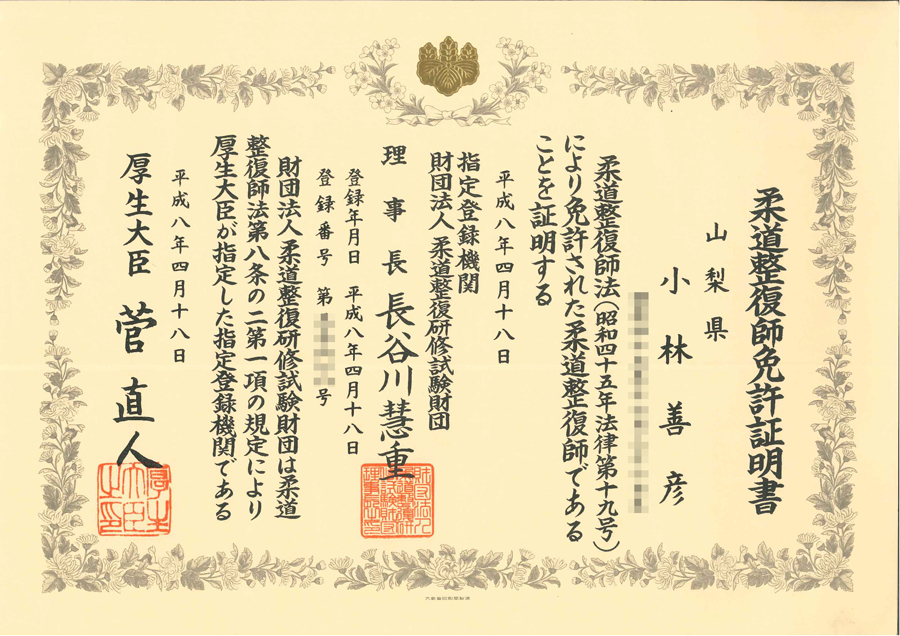 柔道整復師免許証明書
山梨県
小林善彦
柔道整復師法(昭和四十五年法律第十九号)
により免許された柔道整復師である
ことを証明する
平成八年四月十八日
指定登録機関
財団法人 柔道整復研修試験財団
理事長 長谷川慧重
登録年月日 平成八年四月十八日
登録番号 第 号
財団法人柔道整復研修試験財団は柔道
整復師法第八条の二第一項の規定により
厚生大臣が指定した指定登録機関である
平成八年四月十八日
厚生大臣 菅直人